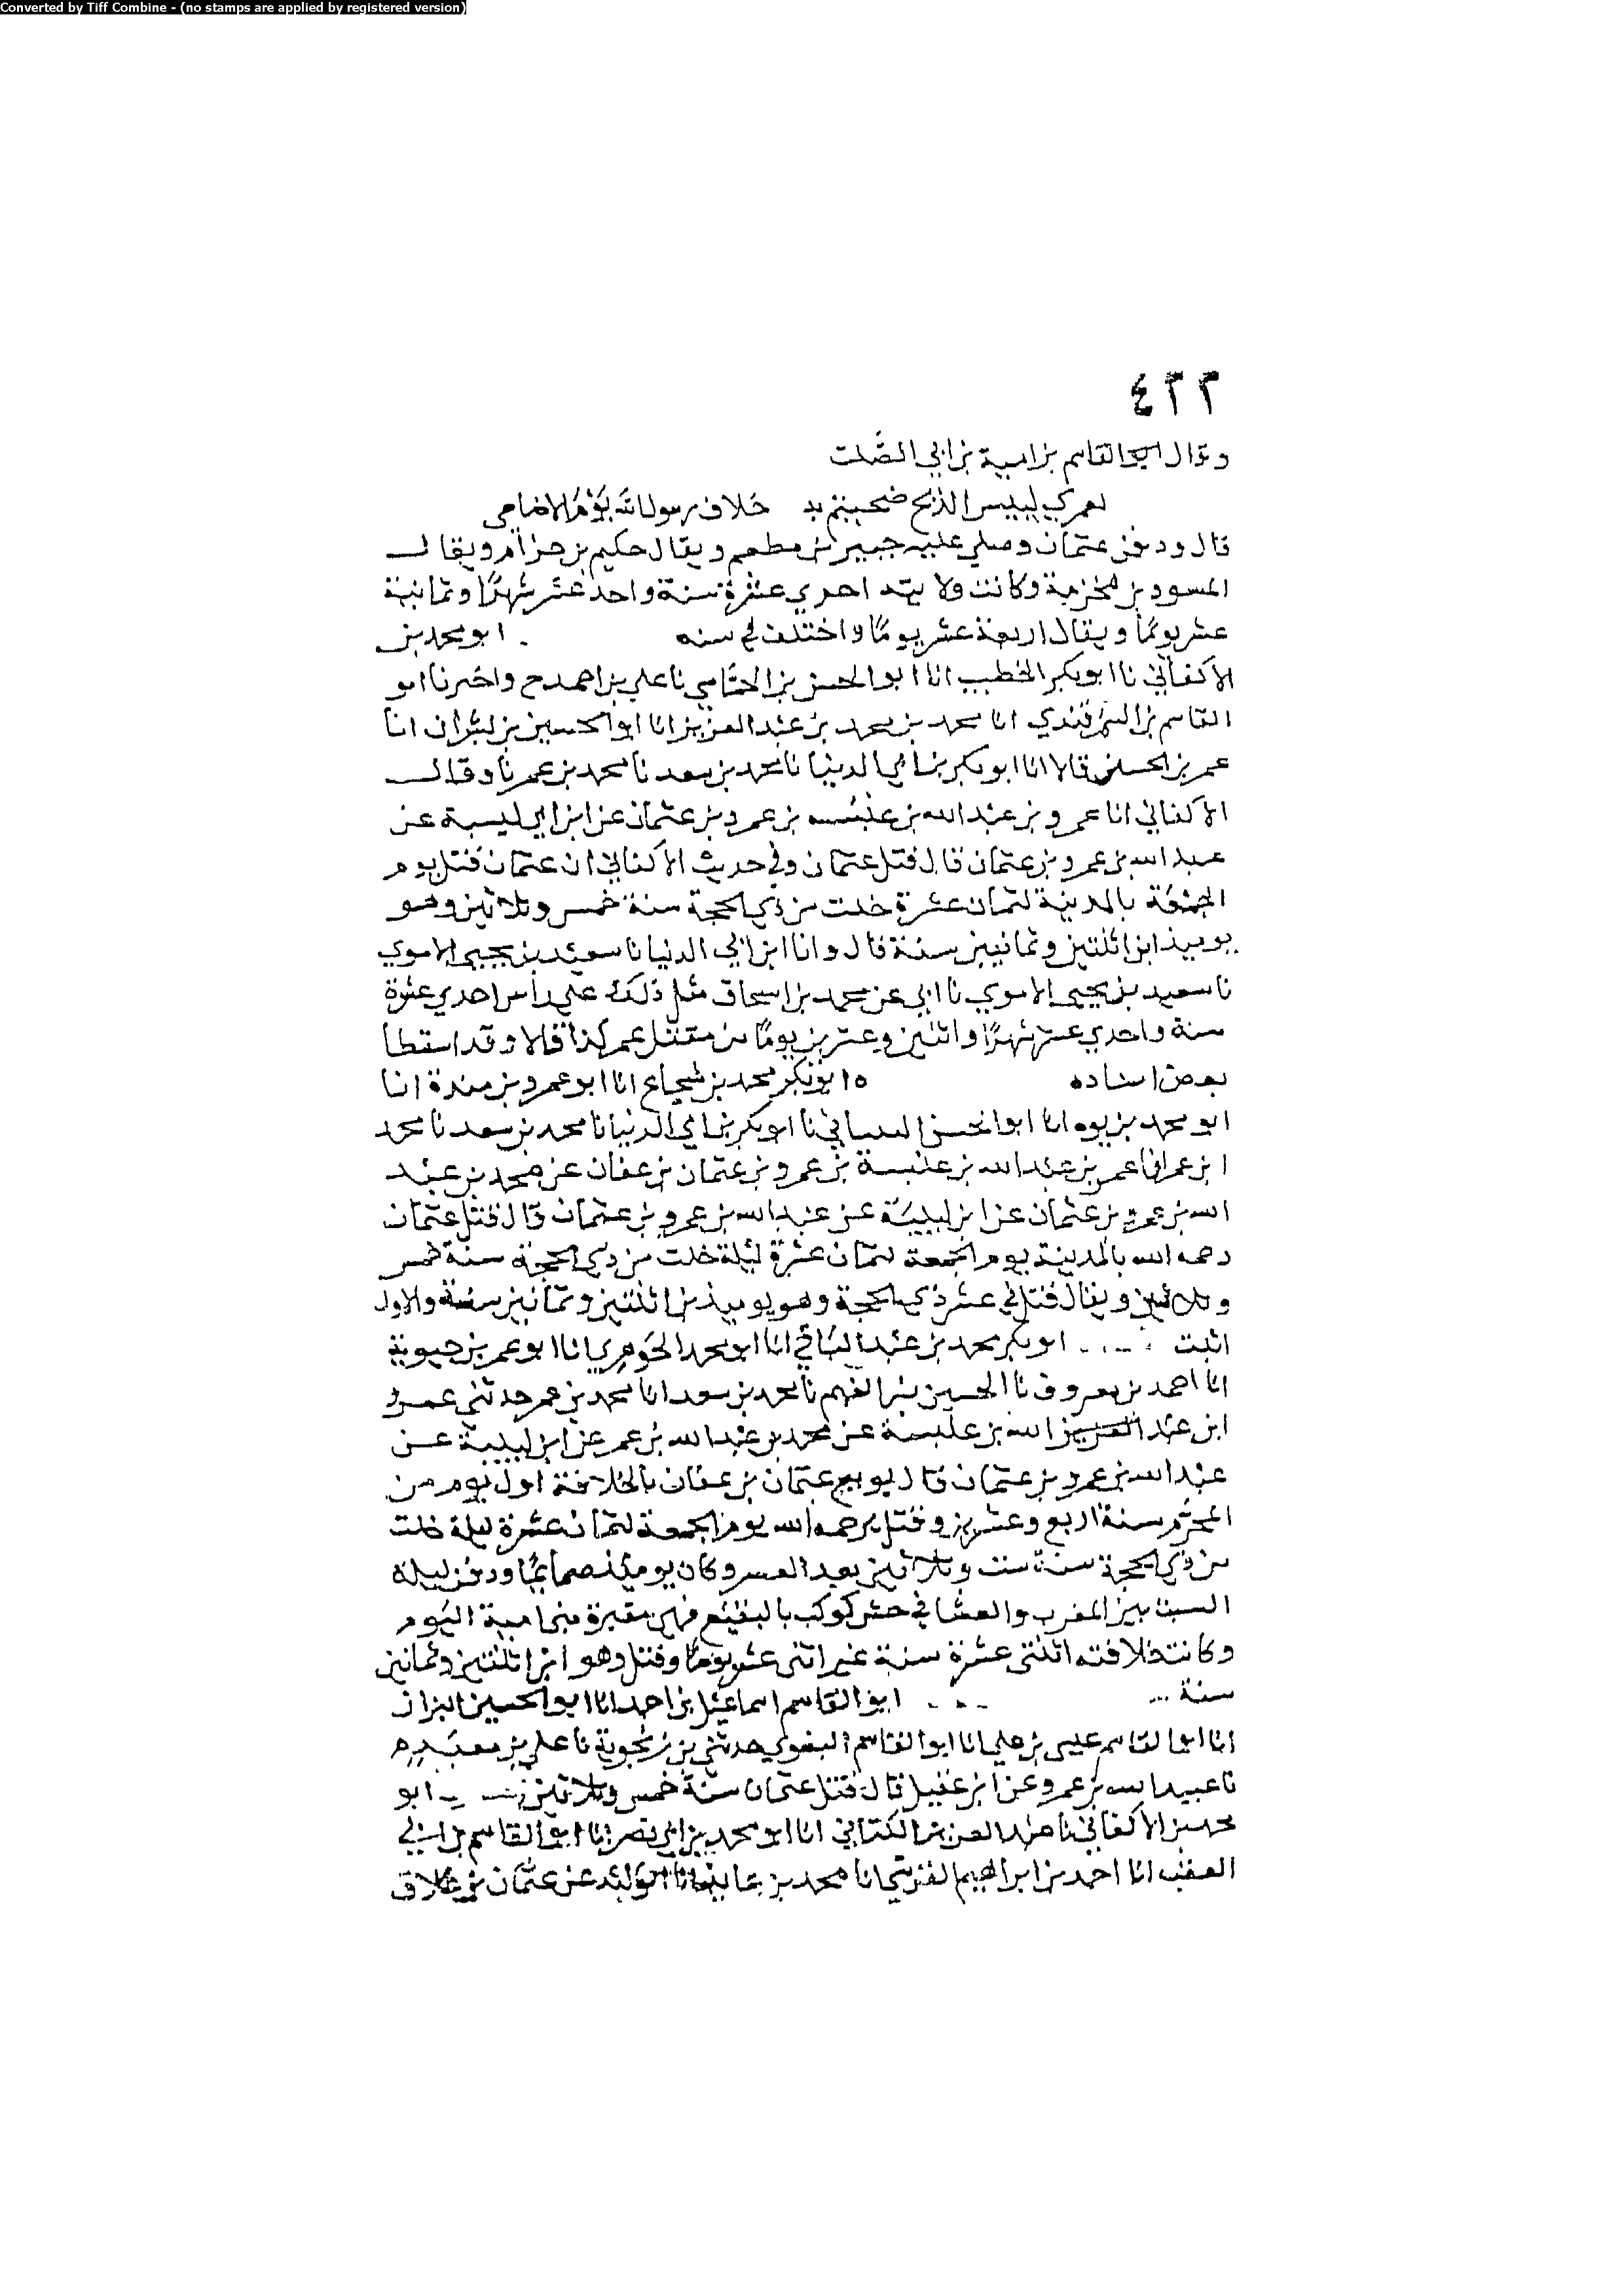 Converted by Tiff Combine - (no stamps are applied by registered version)
٤٢٢
وقال القاسم بن امية بن ابي الصَّلت
لعمري لبيس الذبح ضحيتم به خلاف رسول الله يَوْمَ الاضاحي
قال ودفن عثمان وصلى عليه جبير بن مطعم ويقال حكيم بن حزام ويقال
المسور بن مخرمة وكانت ولايته احدي عشرة سنة واحد عشر شهرًا وثمانية
عشر يومًا ويقال اربعة عشر يومًا واختلف في سنه ابو محمد بن
الاكفاني نا ابو بكر الخطيب انا ابو الحسن بن الحمامي نا علي بن احمد ح واخبرنا ابو
القاسم بن السمرقندي انا محمد بن محمد بن عبد العزيز انا ابو الحسين بن بشران انا
عمر بن الحسن قالا انا ابو بكر بن ابي الدنيا نا محمد بن سعد نا محمد بن عمر نا وقال
الاكفاني انا عمرو بن عبد الله بن عنبسه بن عمرو بن عثمان عن ابن ابي لبيبة عن
عبد الله بن عمرو بن عثمان قال قتل عثمان وفي حديث الاكفاني ان عثمان قتل يوم
الجمعة بالمدينة لثمان عشرة خلت من ذي الحجة سنة خمس وثلاثين وهو
يوميذ ابن اثنتين وثمانين سنة قال وانا ابن ابي الدنيا نا سعيد بن يحيى الاموي
نا سعيد بن يحيى الاموي نا ابي عن محمد بن اسحاق مثل ذلك على رأس احدي عشرة
سنة واحدي عشر شهرًا واثنين وعشرين يومًا من مقتل عمر كذا قالا وقد اسقطا
بعض اسناده ابو بكر محمد بن شجاع انا ابو عمرو بن مندة انا
ابو محمد بن يوه انا ابو الحسن نا ابو بكر بن ابي الدنيا نا محمد بن سعد نا محمد
ابن عمر انا عمر بن عبد الله بن عنبسة بن عمرو بن عثمان بن عفان عن محمد بن عبد
الله بن عمرو بن عثمان عن ابن لبيبة عن عبد الله بن عمرو بن عثمان قال قتل عثمان
رحمه الله بالمدينة يوم الجمعة لثمان عشرة ليلة خلت من ذي الحجة سنة خمس
وثلاثين ويقال قتل في عشر ذي الحجة وهو يوميذ بن اثنتين وثمانين سنة والاول
اثبت ابو بكر محمد بن عبد الباقي انا ابو محمد الجوهري انا ابو عمر بن حيوية
انا احمد بن معروف نا الحسين بن الفهم نا محمد بن سعد انا محمد بن عمر حدثني عمرو
ابن عبد العزيز الله بن عنبسة عن محمد بن عبد الله بن عمر عن ابن لبيبة عن
عبد الله بن عمرو بن عثمان قال بويع عثمان بن عفان بالخلافة اول يوم من
المحرم سنة اربع وعشرين وقتل يرحمه الله يوم الجمعة لثمان عشرة ليلة خلت
من ذي الحجة سنة ست وثلاثين بعد العصر وكان يوميئذ صائمًا ودفن ليلة
السبت بين المغرب والعشا في حش كوكب بالبقيع فهي مقبرة بني امية اليوم
وكانت خلافته اثنتي عشرة سنة غير اثنى عشر يومًا وقتل وهو ابن اثنتين وثمانين
سنة ابو القاسم اسماعيل بن احمد انا ابو الحسين البزاز
انا ابو القاسم عيسى بن علي انا ابو القاسم البغوي حدثني بن زنجوية نا علي بن معبد
نا عبيد الله بن عمرو عن ابن عقيل قال قتل عثمان سنة خمس وثلاثين ابو
محمد بن الاكفاني نا عبد العزيز الكتاني انا ابو محمد بن ابي نصر انا ابو القاسم بن ابي
العقب انا احمد بن ابراهيم القرشي انا محمد بن عايذ انا الوليد عن عثمان بن علاق